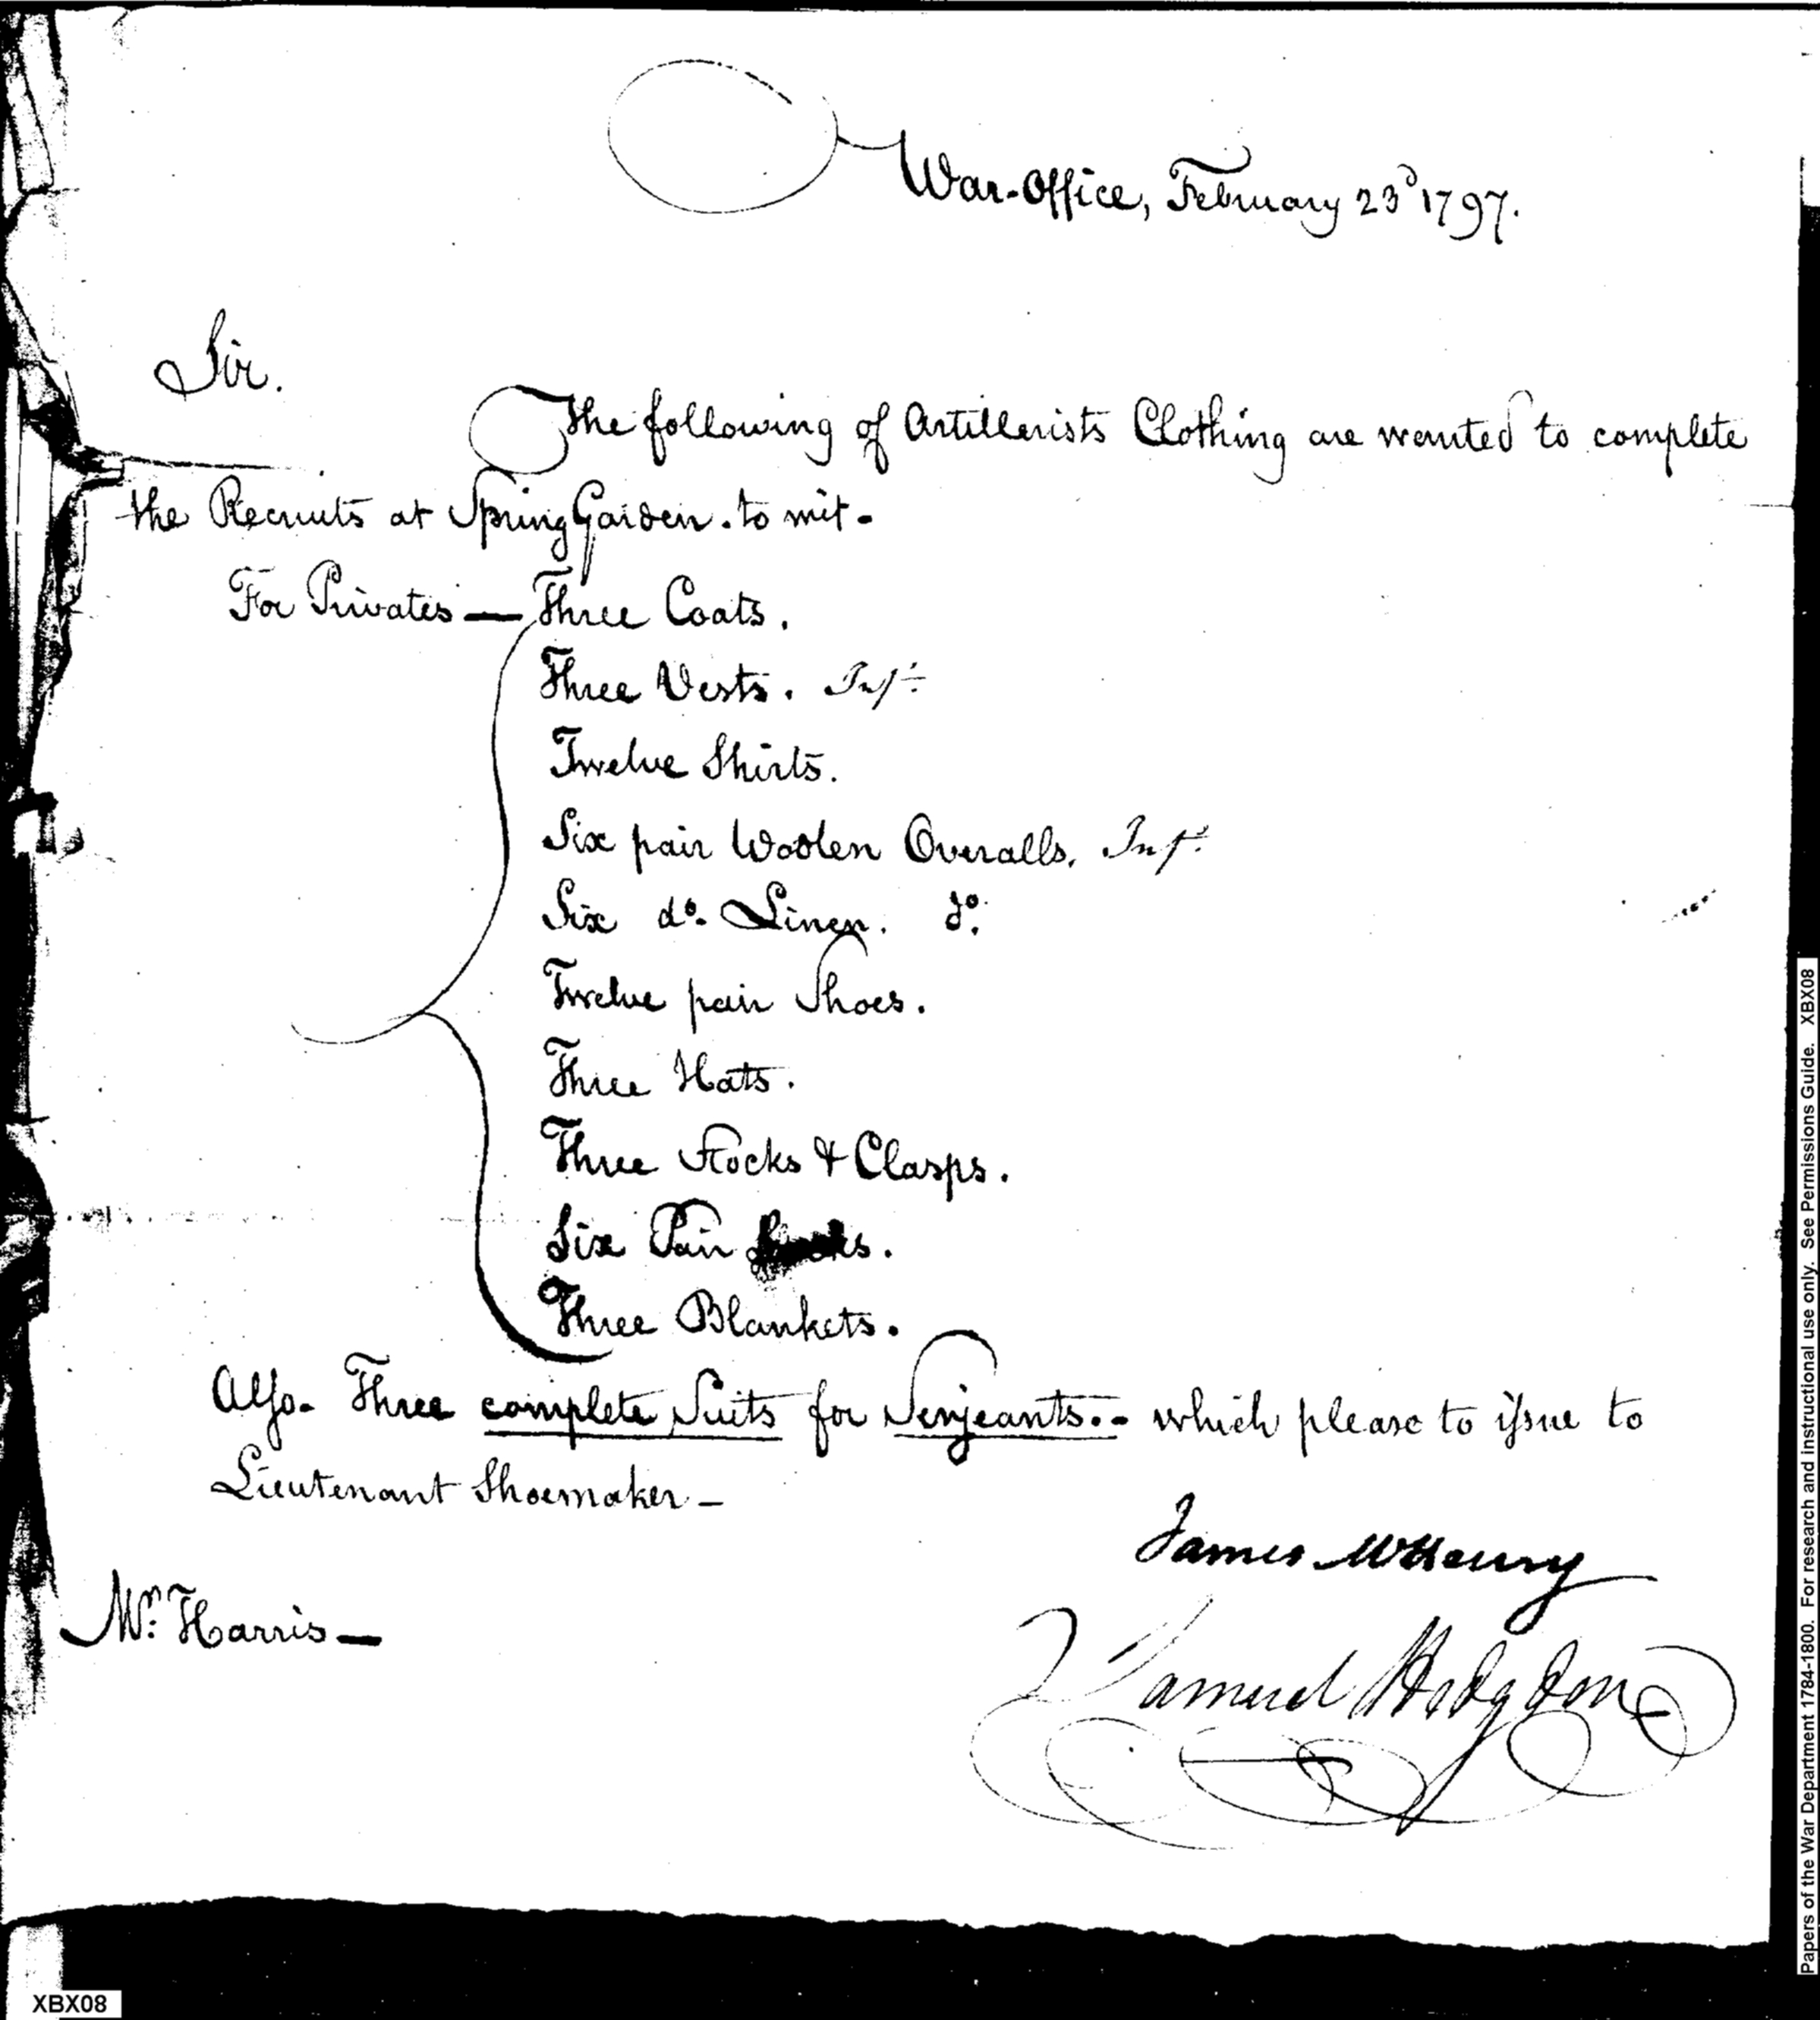 War-Office, February 23d 1797.
Sir.
The following of Artillerists Clothing are wanted to complete
the Recruits at Spring Garden. to wit-
For Privates — Three Coats.
Three Vests. Inf.
Twelve Shirts.
Six pair Woolen Overalls. Inf.
Six do. Linen. do.
Twelve pair Shoes.
Three Hats.
Three Stocks & Clasps.
Six Pair
Three Blankets.
Also- Three complete Suits for Serjeants.- which please to issue to
Lieutenant Shoemaker-
James McHenry
Mr. Harris—
Samuel Hodgdon
Papers of the War Department 1784-1800. For research and instructional use only. See Permissions Guide. XBX08
XBX08